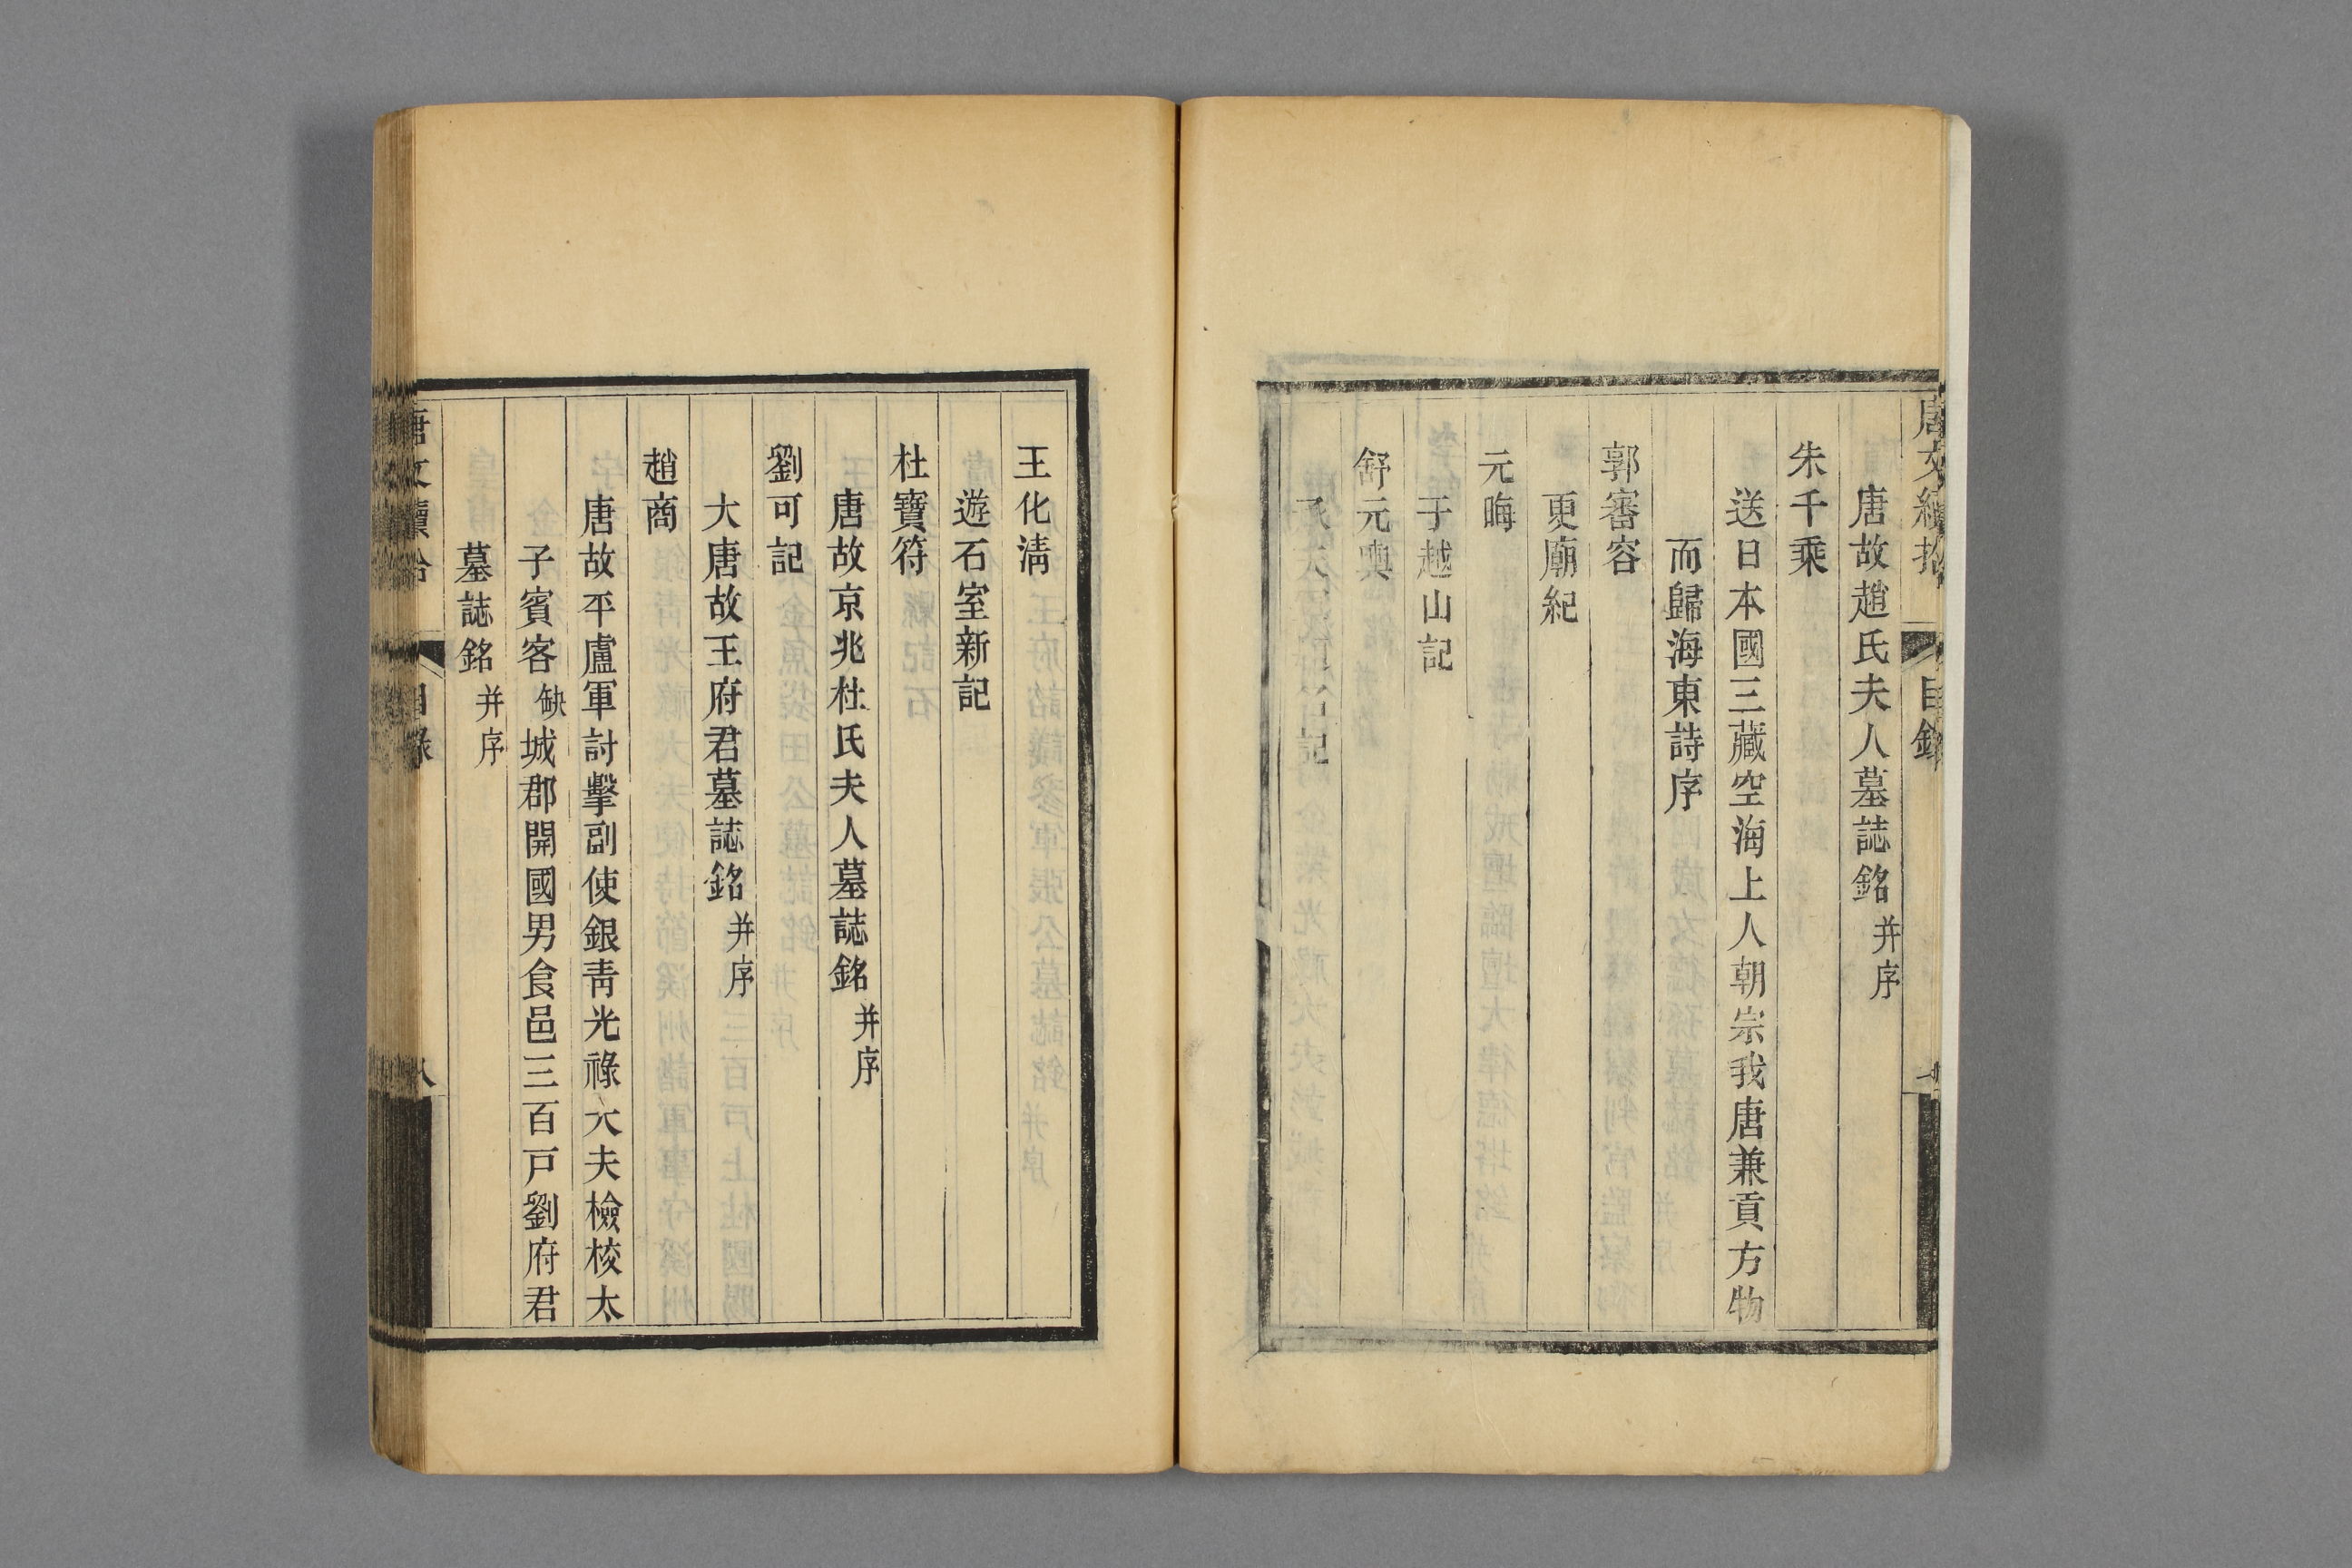 唐文續拾 目錄
唐故趙氏夫人墓誌銘并序
朱千乘
送日本國三藏空海上人朝宗我唐兼貢方物
而歸海東詩序
郭審容
更廟紀
元晦
于越山記
舒元輿
記
王化淸
遊石室新記
杜寶符
唐故京兆杜氏夫人墓誌銘并序
劉可記
大唐故王府君墓誌銘并序
趙商
唐故平盧軍討擊副使銀靑光祿大夫檢校太
子賓客缺城郡開國男食邑三百戸劉府君
墓誌銘并序
唐文續拾 目錄 八